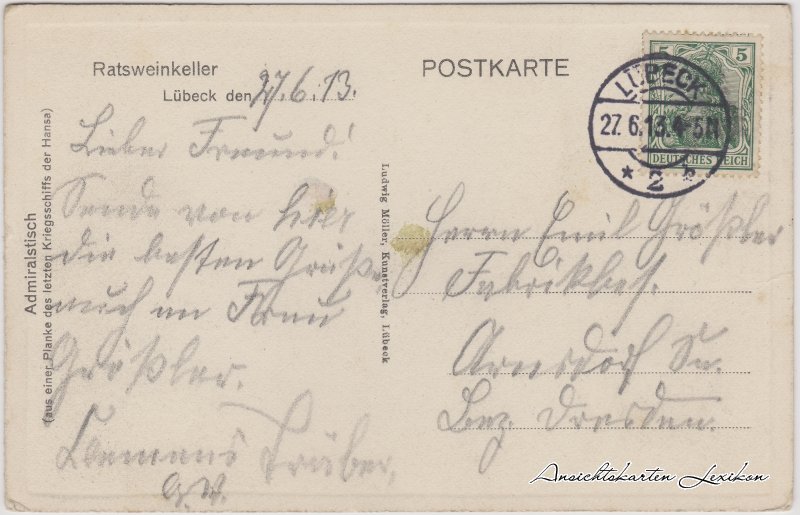 Ratsweinkeller
Lübeck den 27.6.13.
Lieber Freund!
Sende von hier
die besten Grüße
auch an Frau
Größler.
Clemens Träber.
Admiralstisch
(aus einer Planke des letzten Kriegsschiffs der Hansa)
Ludwig Möller, Kunstverlag, Lübeck
POSTKARTE
5 5
DEUTSCHES REICH
LÜBECK
27.6.13.4-5N
* 2 b
Herrn Emil Größler
Fabrikbes.
Arnsdorf Sa.
Bez. Dresden.
Ansichtskarten Lexikon